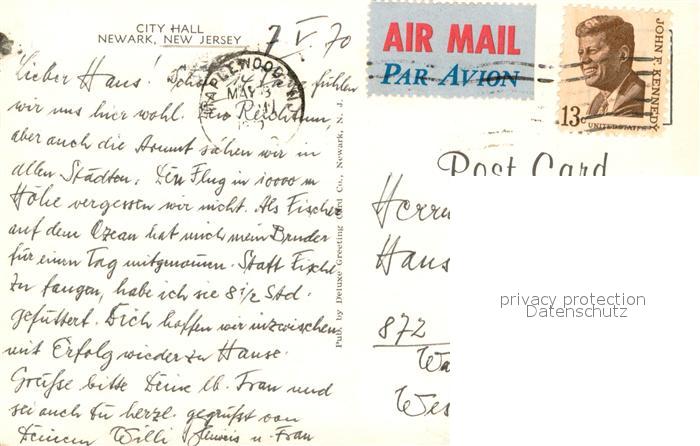 CITY HALL
NEWARK, NEW JERSEY
7 V. 70
AIR MAIL
PAR AVION
JOHN F. KENNEDY
13c
UNITED STATES
MAPLEWOOD
MAY
Post Card
Lieber Hans! Schon fühlen
wir uns hier wohl. Den Reichtum,
aber auch die Armut sahen wir in
allen Städten. Den Flug in 10000 m
Höhe vergessen wir nicht. Als Fischer
auf dem Ozean hat mich mein Bruder
für einen Tag mitgenommen. Statt Fische
zu fangen, habe ich sie 8 1/2 Std.
gefüttert. Dich hoffen wir inzwischen
mit Erfolg wieder zu Hause.
Grüße bitte Deine lb. Frau und
sei auch Du herzl. gegrüßt von
Deinem Willi u. Frau
Pub. by Deluxe Greeting Card Co., Newark, N. J.
Herrn
Hans
872
Wa
Wes
privacy protection
Datenschutz